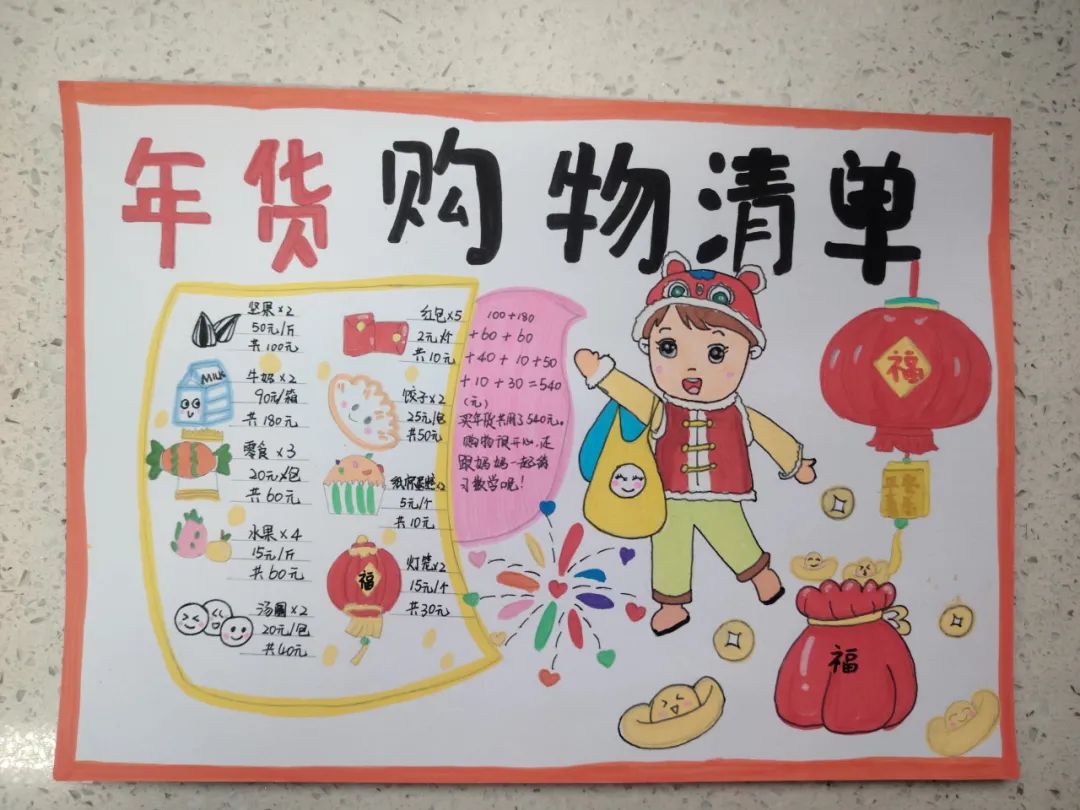 年货购物清单
坚果×2
50元/斤
共100元
MILK
牛奶×2
90元/箱
共180元
零食×3
20元/包
共60元
水果×4
15元/斤
共60元
汤圆×2
20元/包
共40元
红包×5
2元/个
共10元
饺子×2
25元/包
共50元
纸杯蛋糕×2
5元/个
共10元
福
灯笼×2
15元/个
共30元
100+180
+60+60
+40+10+50
+10+30=540
(元)
买年货共用了540元。
购物很开心,还
跟妈妈一起
习数学呢!
福
福